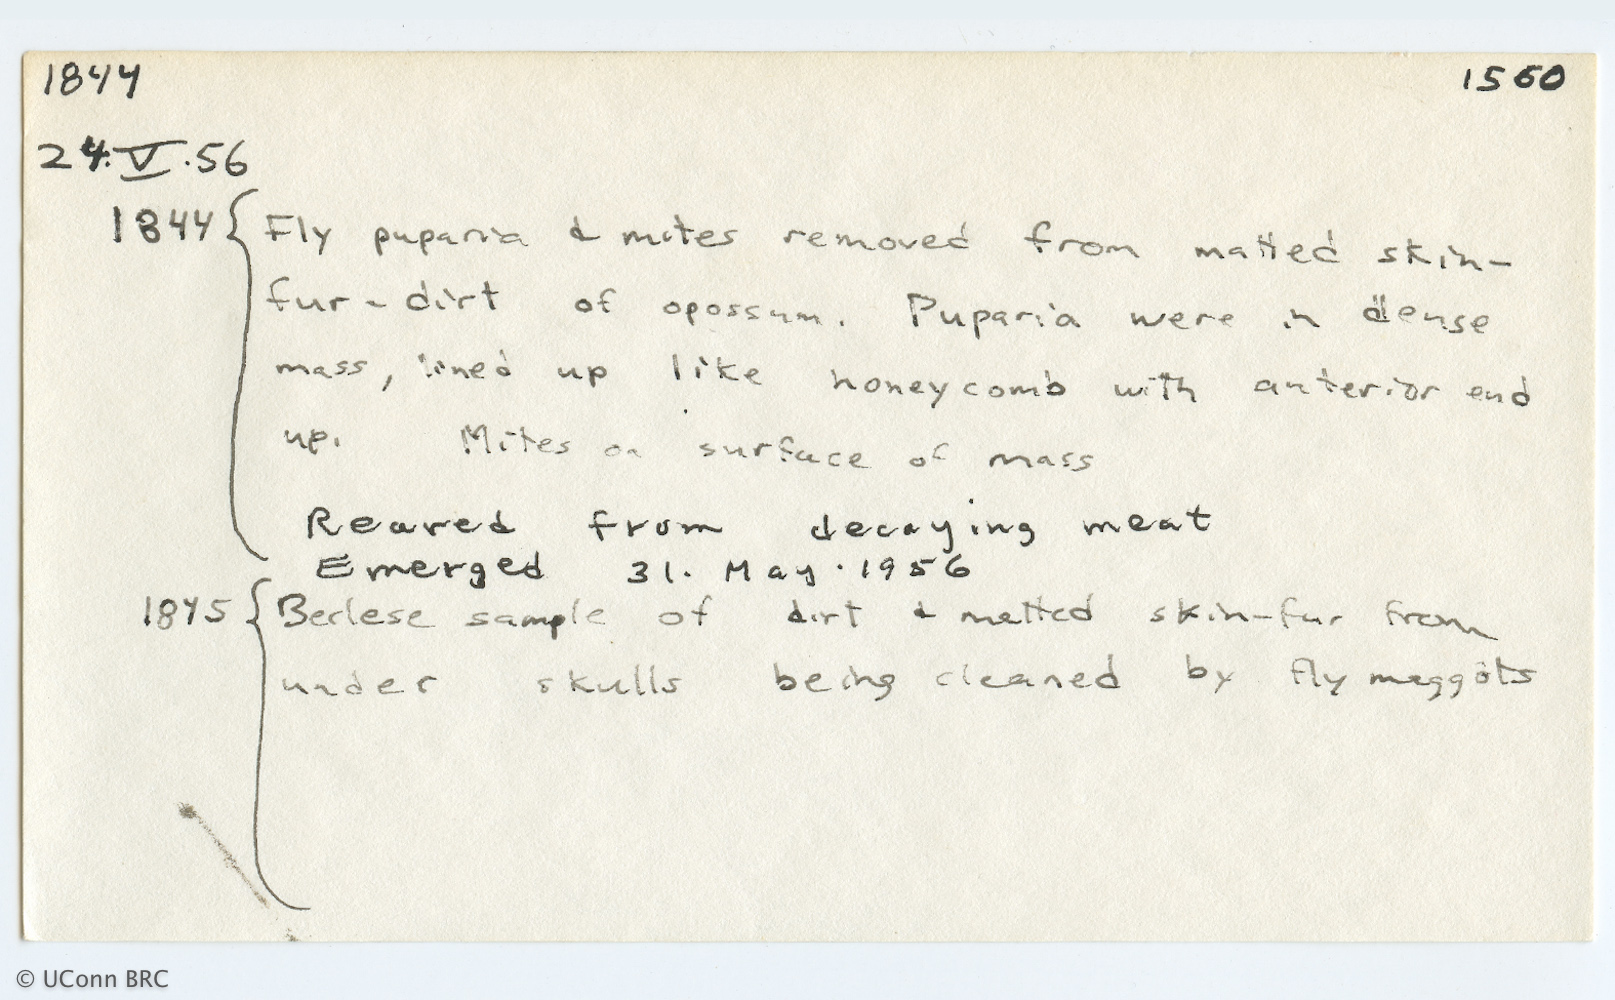 1844 1560
24.V.56
1844 { Fly puparia & mites removed from matted skin-
fur-dirt of opossum. Puparia were in dense
mass, lined up like honeycomb with anterior end
up. Mites on surface of mass
Reared from decaying meat
Emerged 31. May. 1956
1845 { Berlese sample of dirt & matted skin-fur from
under skulls being cleaned by fly maggots
© UConn BRC